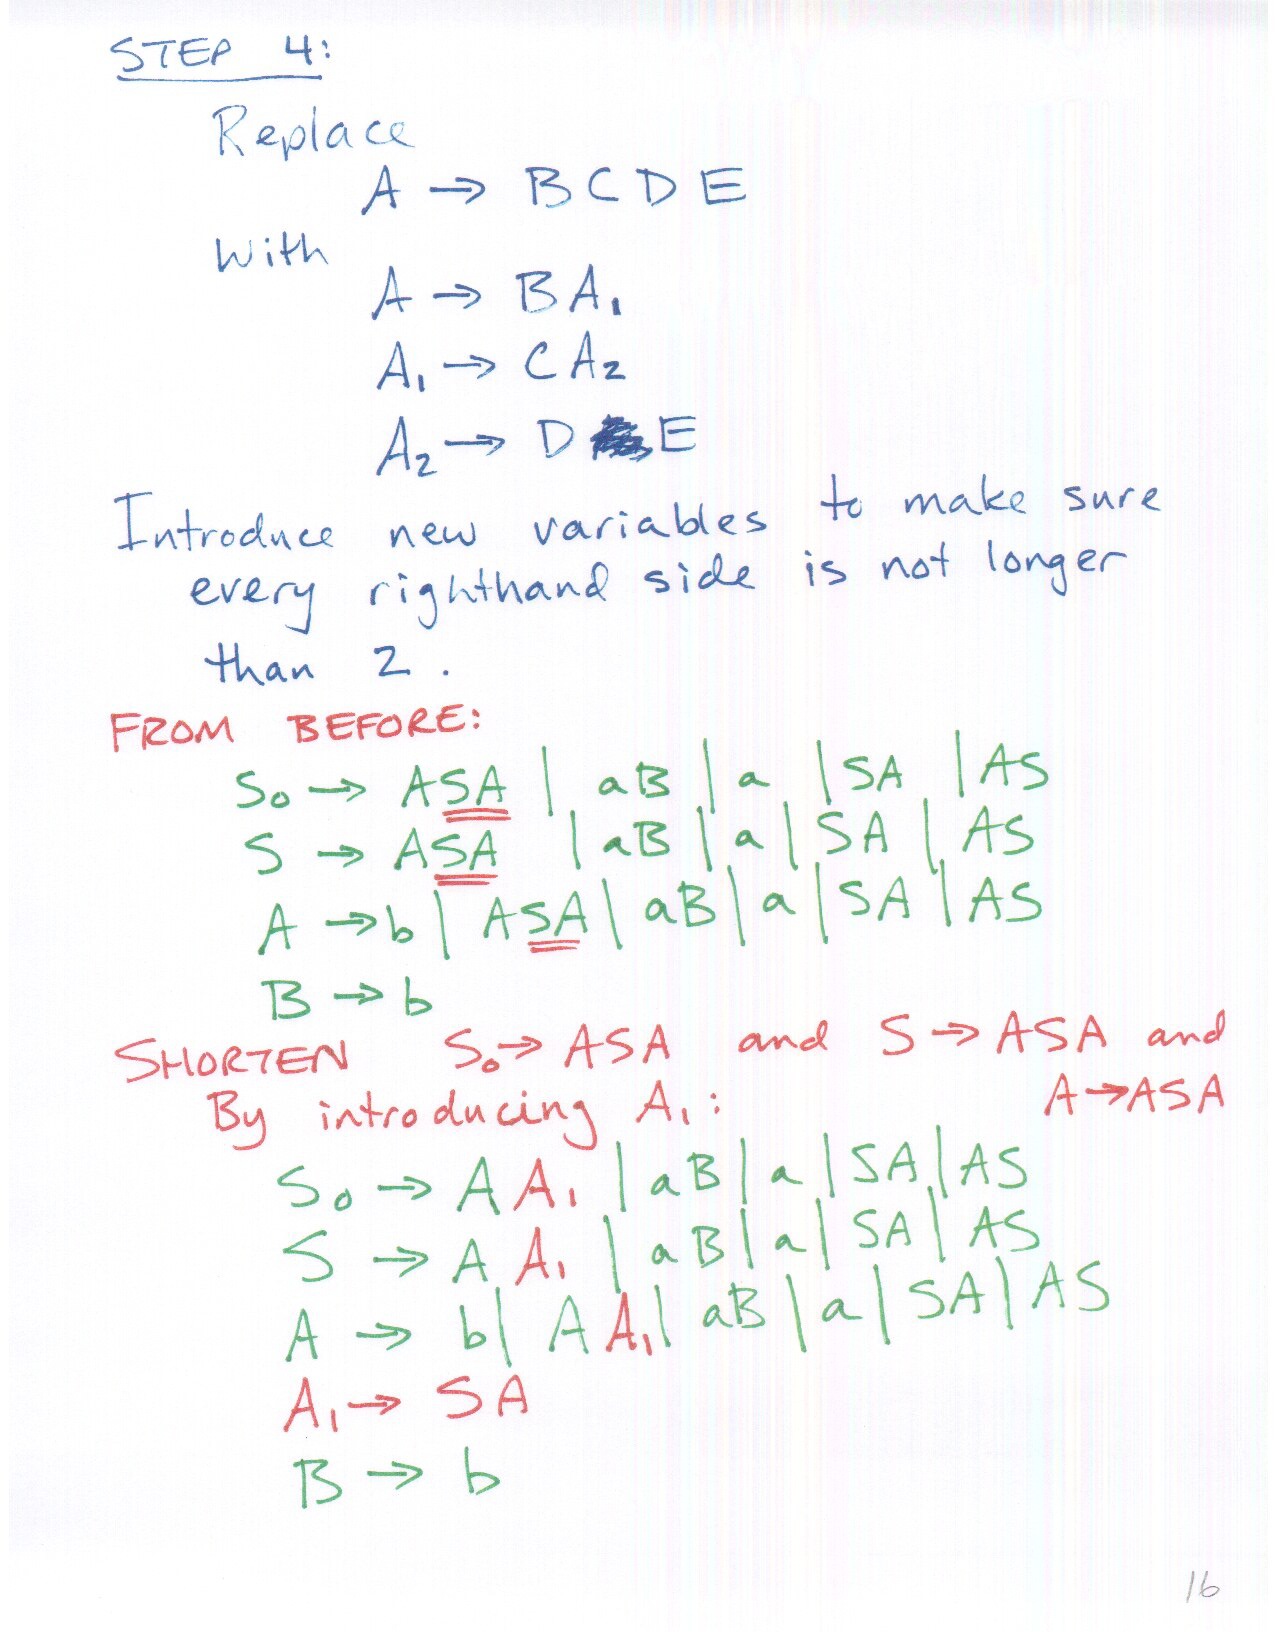 STEP 4:
Replace
A → B C D E
With
A → B A₁
A₁ → C A₂
A₂ → D E
Introduce new variables to make sure
every righthand side is not longer
than 2.
FROM BEFORE:
S₀ → ASA | aB | a | SA | AS
S → ASA | aB | a | SA | AS
A → b | ASA | aB | a | SA | AS
B → b
SHORTEN S₀ → ASA and S → ASA and
A → ASA
By introducing A₁:
S₀ → A A₁ | aB | a | SA | AS
S → A A₁ | aB | a | SA | AS
A → b | A A₁ | aB | a | SA | AS
A₁ → SA
B → b
16